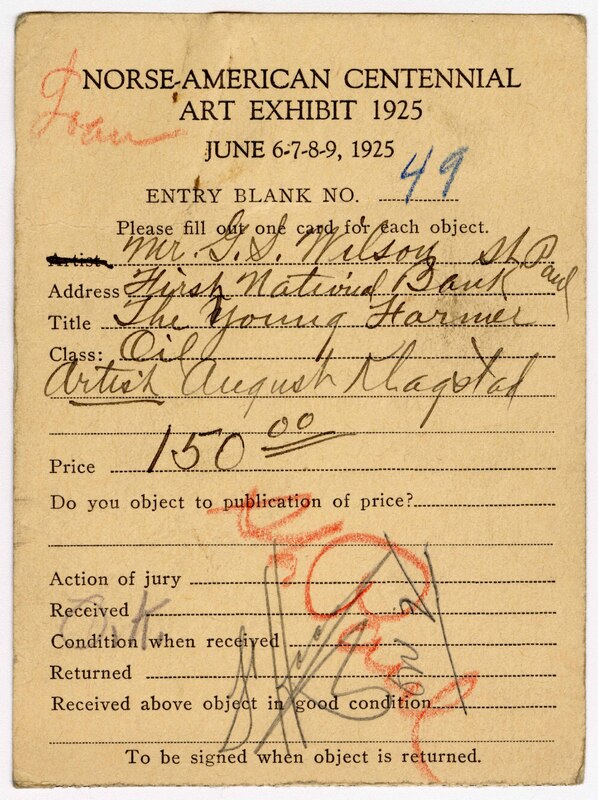 NORSE-AMERICAN CENTENNIAL
ART EXHIBIT 1925
JUNE 6-7-8-9, 1925
ENTRY BLANK NO. 49
Please fill out one card for each object.
Artist Mr. G. S. Wilson St. Paul
Address First National Bank
Title The Young Farmer
Class: Oil
Artist August Klagstad
Price 150 00
Do you object to publication of price?
Action of jury
Received O.K.
Condition when received
Returned
Received above object in good condition
To be signed when object is returned.